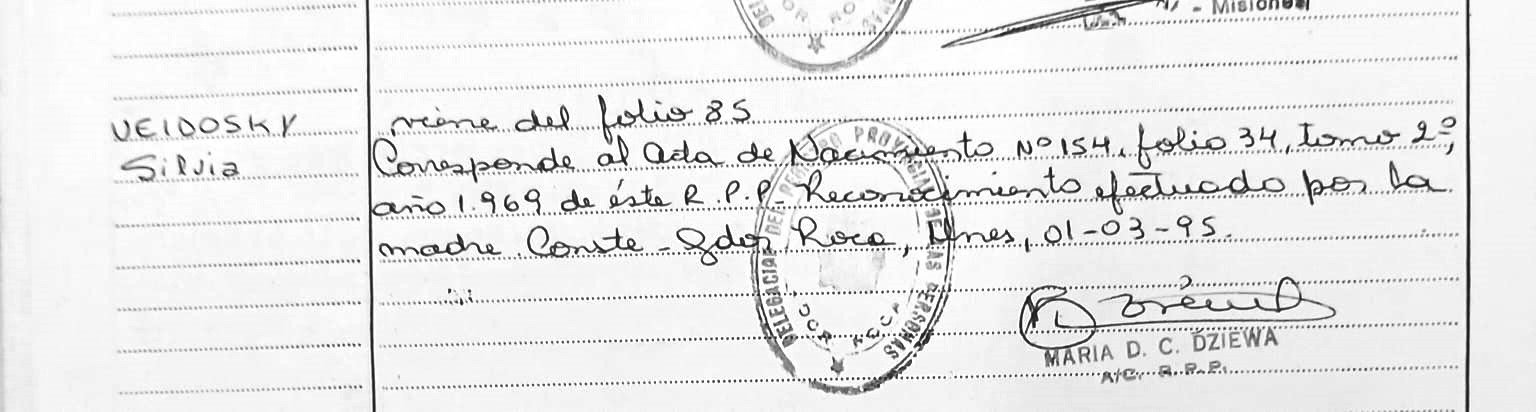 - Misiones
VEIDOSKY
Silvia
viene del folio 85
Corresponde al Acta de Nacimiento Nº 154, folio 34, tomo 2º,
año 1.969 de éste R.P.P.- Reconocimiento efectuado por la
madre. Conste - Gdor. Roca, Mnes, 01-03-95.
DELEGACION DEL REGISTRO PROVINCIAL DE LAS PERSONAS
MARIA D. C. DZIEWA
A/C. R.P.P.